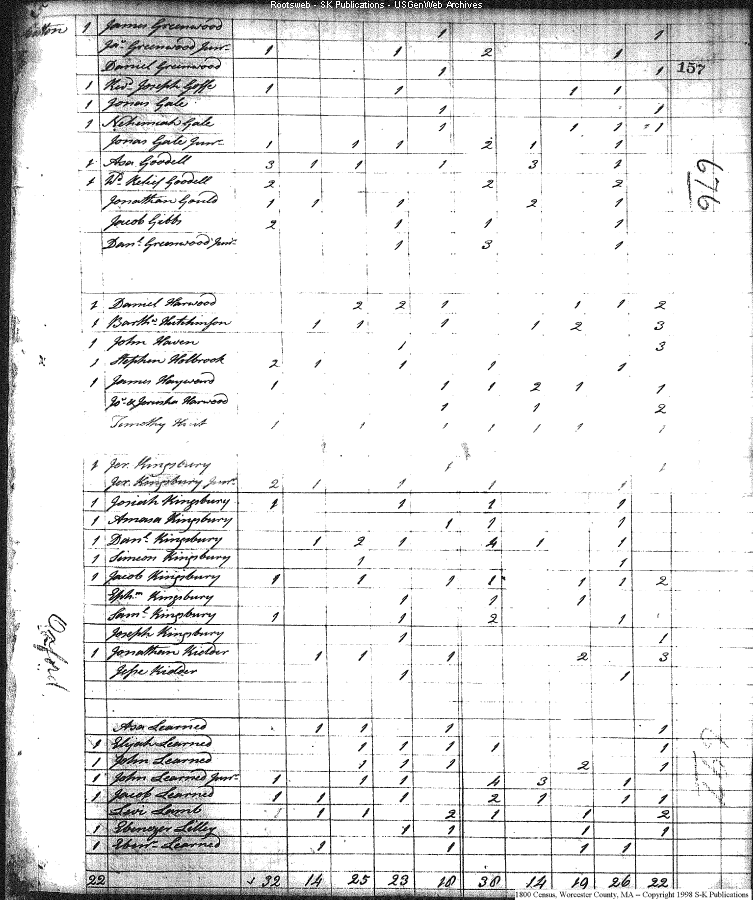 Rootsweb - SK Publications - USGenWeb Archives
1 James Greenwood 1 1
Jas. Greenwood Junr. 1 1 2 1
Daniel Greenwood 1 1 157
1 Revd. Joseph Goffe 1 1 1 1
1 Jonas Gale 1 1
1 Nehemiah Gale 1 1 1 1
Jonas Gale Junr. 1 1 1 2 1 1
1 Asa Goodell 3 1 1 1 3 1
1 Wm. Goodell 2 2 2
Jonathan Gould 1 1 1 2 1
676
Jacob Gibbs 2 1 1 1
Danl. Greenwood Junr. 1 3 1
1 Daniel Harwood 2 2 1 1 1 2
1 Barthw. Hutchinson 1 1 1 1 2 3
1 John Haven 1 3
1 Stephen Holbrook 2 1 1 1 1
1 James Hayward 1 1 1 2 1 1
Jos. & Jerusha Harwood 1 1 2
Timothy 1 1 1 1 1 1 1
1 Jer. Kingsbury 1 1
Jer. Kingsbury Junr. 2 1 1 1 1
1 Josiah Kingsbury 1 1 1 1
1 Amasa Kingsbury 1 1 1
1 Danl. Kingsbury 1 2 1 4 1 1
1 Simeon Kingsbury 1 1
1 Jacob Kingsbury 1 1 1 1 1 1 2
Ephm. Kingsbury 1 1 1
Saml. Kingsbury 1 1 2 1
Joseph Kingsbury 1 1
1 Jonathan Kidder 1 1 1 2 3
Jesse Kidder 1 1
Oxford
Asa Learned 1 1 1 1
1 Elijah Learned 1 1 1 1 1
1 John Learned 1 1 1 2 1
1 John Learned Junr. 1 1 1 4 3 1
1 Jacob Learned 1 1 1 2 1 1 1
Levi Lamb 1 1 1 2 1 1 2
1 Ebenezer Lilley 1 1 1 1
1 Ebenr. Learned 1 1 1 1
677
22 32 14 25 23 18 38 14 19 26 22
1800 Census, Worcester County, MA -- Copyright 1998 S-K Publications